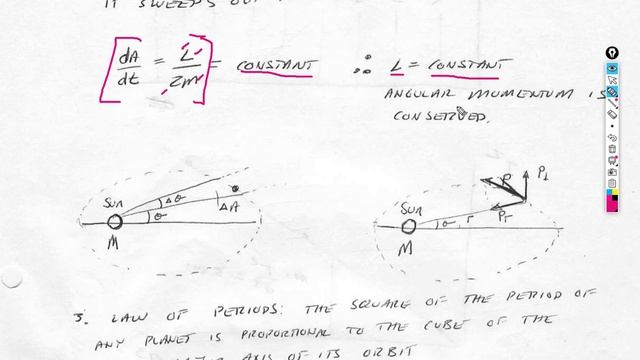 IT SWEEPS OUT
dA/dt = L/2m = CONSTANT ∴ L = CONSTANT
ANGULAR MOMENTUM IS
CONSERVED.
SUN Δθ θ ΔA
M
SUN θ r P P⊥ Pr
M
3. LAW OF PERIODS: THE SQUARE OF THE PERIOD OF
ANY PLANET IS PROPORTIONAL TO THE CUBE OF THE
AXIS OF ITS ORBIT